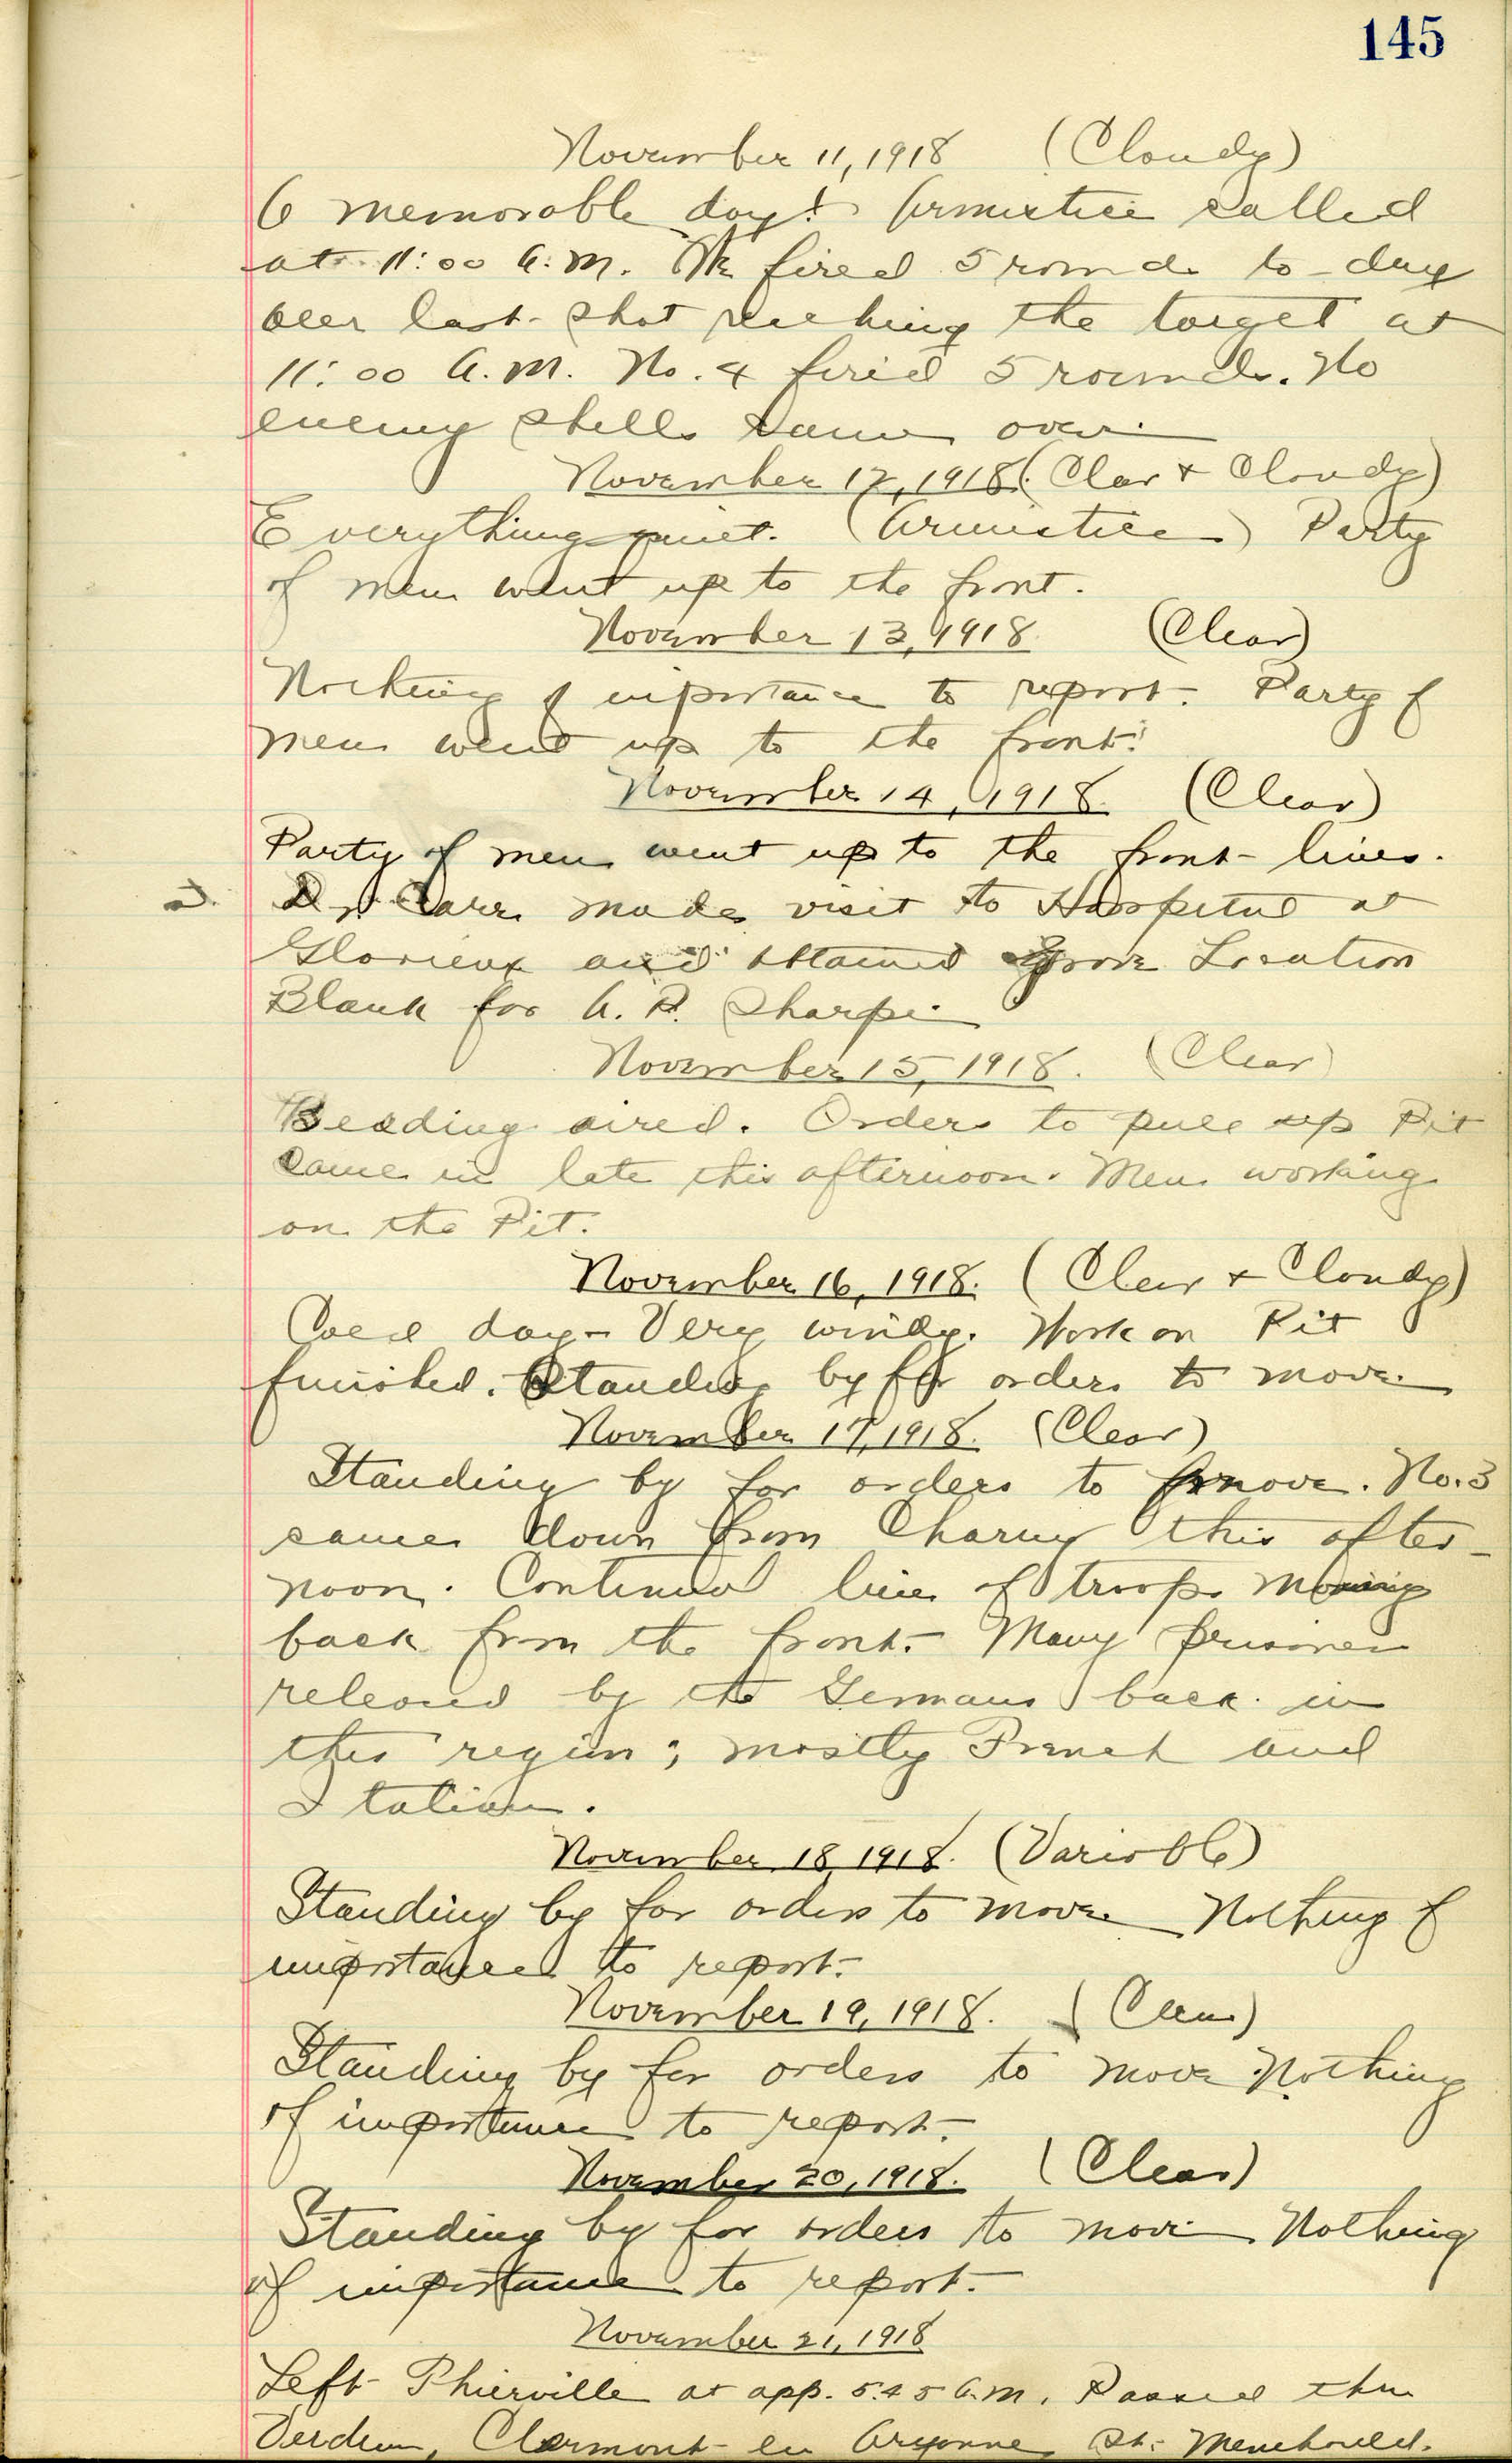 145
November 11, 1918 (Cloudy)
A memorable day! Armistice called
at 11:00 A.M. We fired 5 rounds to-day
our last shot reaching the target at
11:00 A.M. No. 4 fired 5 rounds. No
enemy shells came over.
November 12, 1918. (Clear + Cloudy)
Everything quiet. (Armistice) Party
of men went up to the front.
November 13, 1918 (Clear)
Nothing of importance to report. Party of
men went up to the front.
November 14, 1918. (Clear)
Party of men went up to the front lines.
Dr. Carr made visit to Hospital at
Glorieux and obtained Grave Location
Blank for A. P. Sharpe.
November 15, 1918. (Clear)
Bedding aired. Orders to pull up Pit
came in late this afternoon. Men working
on the Pit.
November 16, 1918. (Clear + Cloudy)
Cold day - Very windy. Work on Pit
finished. Standing by for orders to move.
November 17, 1918. (Clear)
Standing by for orders to move. No. 3
came down from Charny this after-
noon. Continual line of troops moving
back from the front. Many prisoners
released by the Germans back in
this region; mostly French and
Italian.
November 18, 1918. (Variable)
Standing by for orders to move Nothing of
importance to report.
November 19, 1918. (Clear)
Standing by for orders to move Nothing
of importance to report.
November 20, 1918. (Clear)
Standing by for orders to move Nothing
of importance to report.
November 21, 1918
Left Thierville at app. 5.45 A.M. Passed thru
Verdun, Clermont en Argonne, St. Menehould.